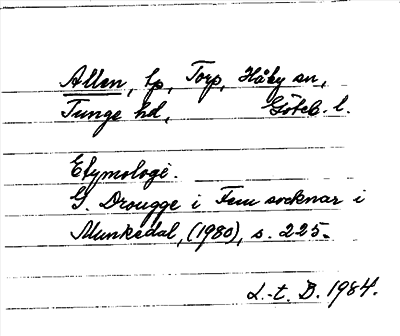 Allen, lp, Torp, Håby sn,
Tunge hd, Göteb. l.
Etymologi.
G. Drougge i Fem socknar i
Munkedal, (1980), s. 225.
L.-t. B. 1984.